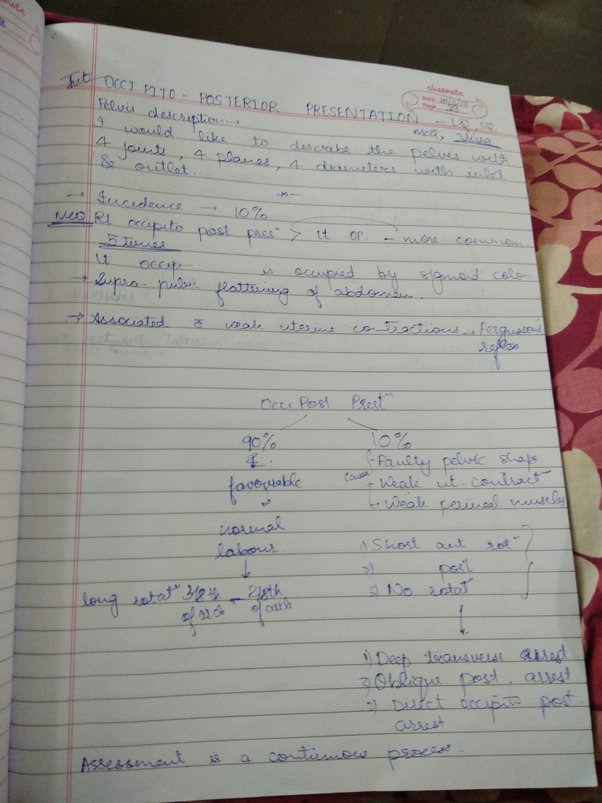 OCCIPITO - POSTERIOR PRESENTATION - LQ, SQ
MCQ, Viva
classmate
Date
Page
Pelvis description →
I would like to describe the pelvis with
4 joints, 4 planes, 4 diameters with inlet
& outlet.
→ Incidence → 10%
MCQ Rt occipito post presn > lt OP. - more common
5 times
lt occip is occupied by sigmoid colon
→ Supra-pubic flattening of abdomen.
→ Associated c̄ weak uterine contractions. Ferguson's
reflex
Occi Post Prestn
90% 10%
favourable
normal
labour
long rotatn 3/8th - 2/8th
of circle of circle
Causes
- Faulty pelvic shap
- Weak ut. contractn
- Weak perineal muscles
1) Short ant rotn
2) post
3) No rotatn
1) Deep transverse arrest
2) Oblique post. arrest
3) Direct occipito post.
arrest
Assessment is a continuous process.